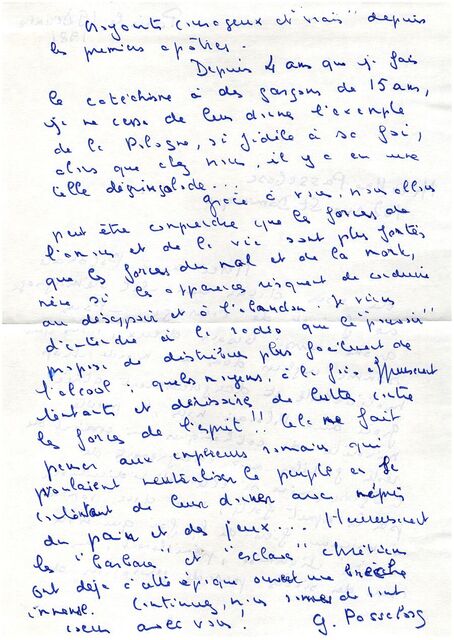 croyants courageux et "vrais" depuis
les premiers apôtres.
Depuis 4 ans que je fais
le catéchisme à des garçons de 15 ans,
je ne cesse de leur donner l'exemple
de la Pologne, si fidèle à sa foi,
alors que chez nous, il y a eu une
telle dégringolade...
Grâce à vous, nous allons
peut être comprendre que les forces de
l'amour et de la vie sont plus fortes
que les forces du mal et de la mort,
même si les apparences risquent de conduire
au désespoir et à l'abandon. Je viens
d'entendre à la radio que le "pouvoir"
propose de distribuer plus facilement de
l'alcool : quels moyens, à la fois
et dérisoires de lutter contre
les forces de l'esprit !! Cela me fait
penser aux empereurs romains qui
voulaient neutraliser le peuple en se
contentant de leur donner avec mépris
du pain et des jeux... Heureusement
les "barbares" et "esclaves" chrétiens
ont déjà à cette époque ouvert une brèche
immense. Continuez, nous sommes de tout
coeur avec vous !